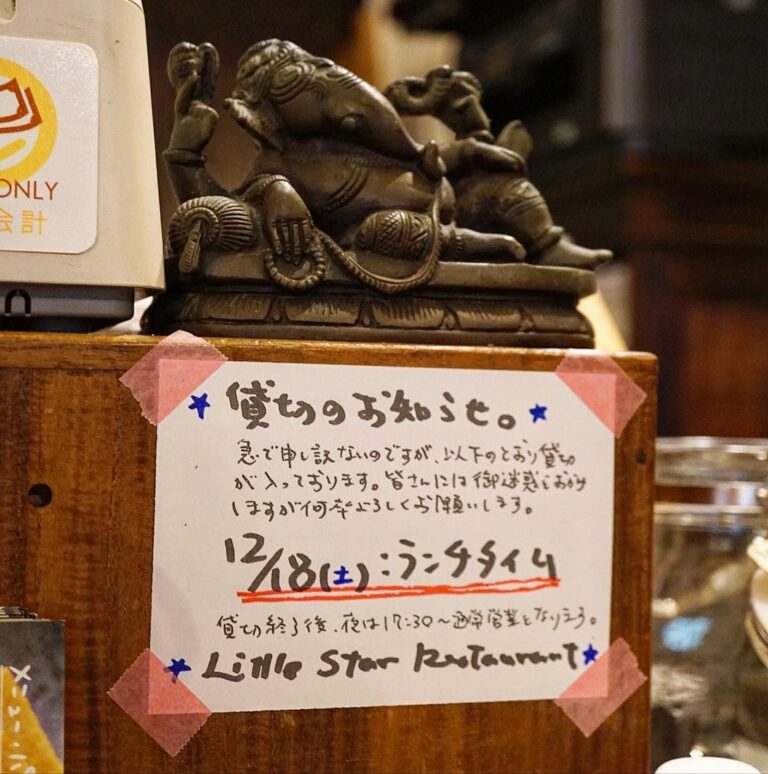 ONLY
会計
貸切のお知らせ。
急で申し訳ないのですが、以下のとおり貸切
が入っております。皆さんには御迷惑をおかけ
しますが何卒よろしくお願いします。
12/18(土):ランチタイム
貸切終了後、夜は17:30〜通常営業となります。
Little Star Restaurant
メニュー